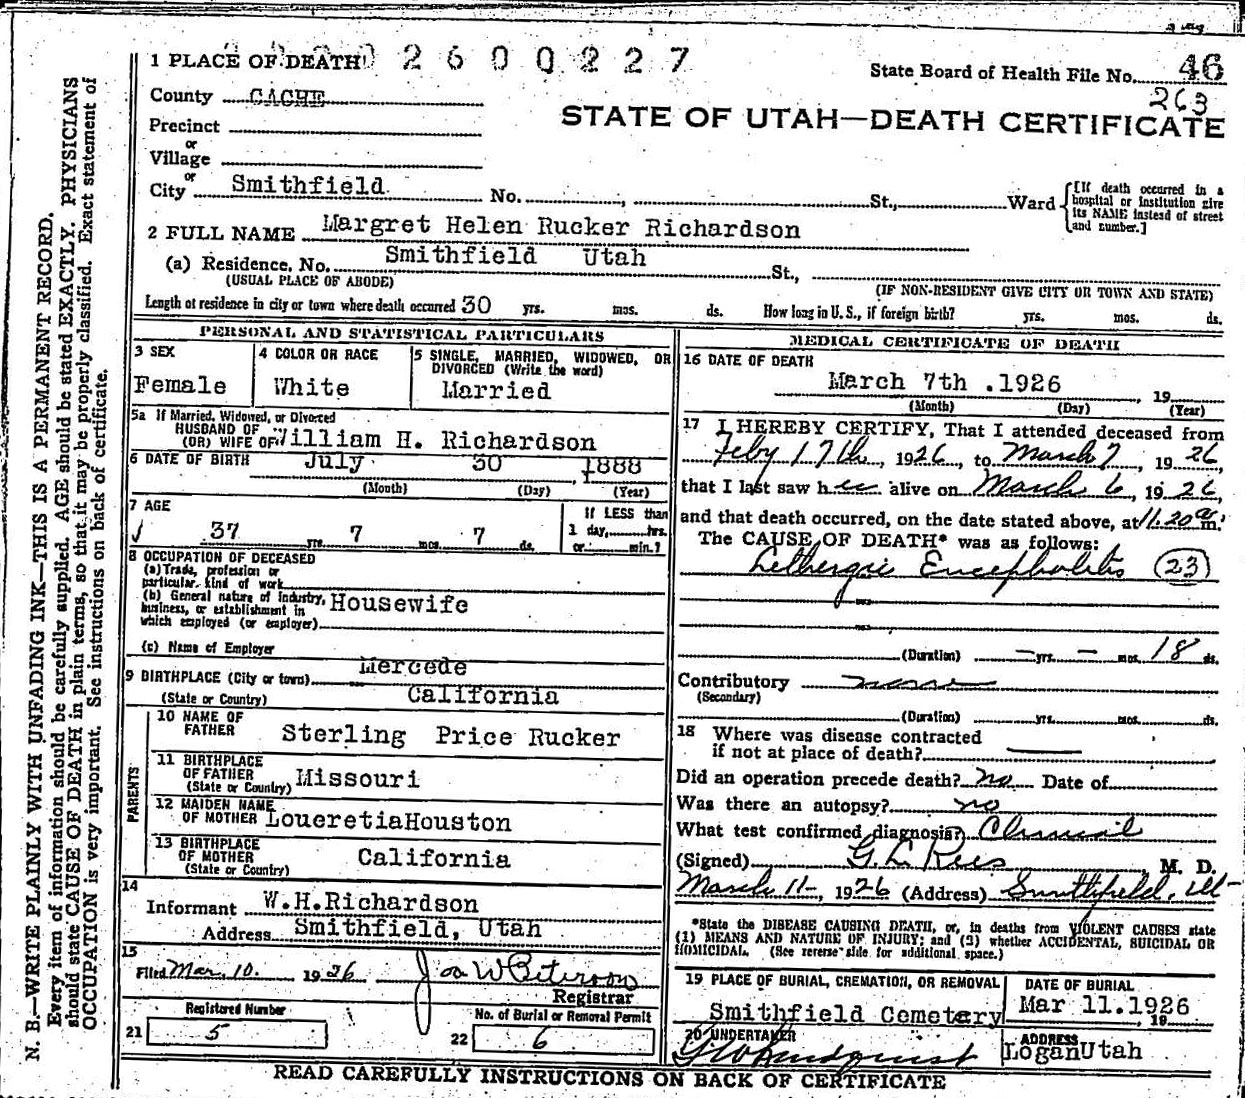 N. B.—WRITE PLAINLY WITH UNFADING INK—THIS IS A PERMANENT RECORD.
Every item of information should be carefully supplied. AGE should be stated EXACTLY. PHYSICIANS
should state CAUSE OF DEATH in plain terms, so that it may be properly classified. Exact statement of
OCCUPATION is very important. See instructions on back of certificate.
1 PLACE OF DEATH 2600227
State Board of Health File No. 46
263
County CACHE
STATE OF UTAH—DEATH CERTIFICATE
Precinct
or
Village
or
City Smithfield No. , St., Ward
[If death occurred in a
hospital or institution give
its NAME instead of street
and number.]
2 FULL NAME Margret Helen Rucker Richardson
(a) Residence, No. Smithfield Utah St.,
(USUAL PLACE OF ABODE) (IF NON-RESIDENT GIVE CITY OR TOWN AND STATE)
Length of residence in city or town where death occurred 30 yrs. mos. ds. How long in U. S., if foreign birth? yrs. mos. ds.
PERSONAL AND STATISTICAL PARTICULARS
3 SEX
Female
4 COLOR OR RACE
White
5 SINGLE, MARRIED, WIDOWED, OR
DIVORCED (Write the word)
Married
5a If Married, Widowed, or Divorced
HUSBAND OF
(OR) WIFE OF William H. Richardson
6 DATE OF BIRTH July 30 1888
(Month) (Day) (Year)
7 AGE
37 yrs. 7 mos. 7 ds.
If LESS than
1 day, hrs.
or min.?
8 OCCUPATION OF DECEASED
(a) Trade, profession or
particular kind of work
(b) General nature of industry,
business, or establishment in
which employed (or employer) Housewife
(c) Name of Employer
9 BIRTHPLACE (City or town) Mercede
(State or Country) California
PARENTS
10 NAME OF
FATHER Sterling Price Rucker
11 BIRTHPLACE
OF FATHER
(State or Country) Missouri
12 MAIDEN NAME
OF MOTHER LoueretiaHouston
13 BIRTHPLACE
OF MOTHER
(State or Country) California
14
Informant W.H.Richardson
Address Smithfield, Utah
15
Filed Mar. 10. 1926 Peterson
Registrar
Registered Number
21 5
No. of Burial or Removal Permit
22 6
MEDICAL CERTIFICATE OF DEATH
16 DATE OF DEATH
March 7th .1926 , 19
(Month) (Day) (Year)
17 I HEREBY CERTIFY, That I attended deceased from
Feby 17th, 1926, to March 7, 1926,
that I last saw her alive on March 6, 1926,
and that death occurred, on the date stated above, at 11.20 a m.
The CAUSE OF DEATH* was as follows:
Lethergic Encephalitis (23)
(Duration) — yrs. — mos. 18 ds.
Contributory none
(Secondary)
(Duration) yrs. mos. ds.
18 Where was disease contracted
if not at place of death? —
Did an operation precede death? no Date of
Was there an autopsy? no
What test confirmed diagnosis? Clinical
(Signed) G. L. Rees M. D.
March 11-, 1926 (Address) Smithfield, Ut-
*State the DISEASE CAUSING DEATH, or, in deaths from VIOLENT CAUSES state
(1) MEANS AND NATURE OF INJURY; and (2) whether ACCIDENTAL, SUICIDAL OR
HOMICIDAL. (See reverse side for additional space.)
19 PLACE OF BURIAL, CREMATION, OR REMOVAL
Smithfield Cemetary
DATE OF BURIAL
Mar 11.1926
, 19
20 UNDERTAKER
Lundquist
ADDRESS
LoganUtah
READ CAREFULLY INSTRUCTIONS ON BACK OF CERTIFICATE